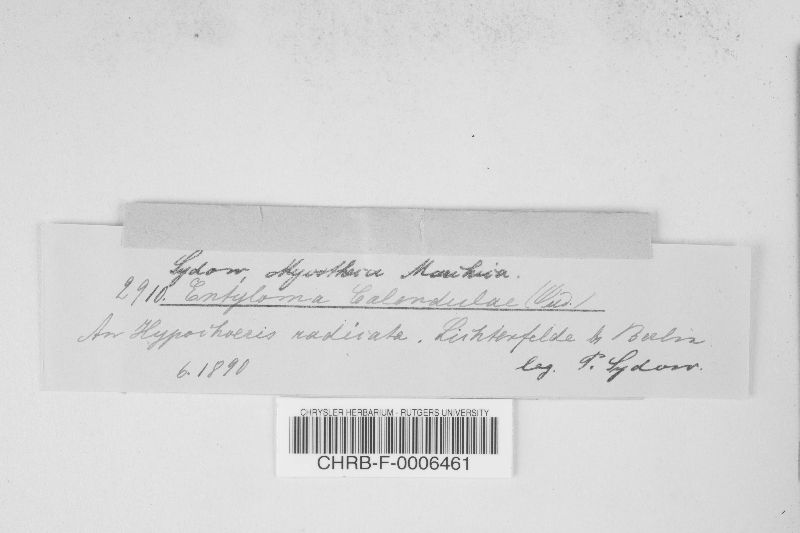 Sydow, Mycotheca Marchica.
2910. Entyloma Calendulae (Oud.)
An Hypochoeris radicata. Lichterfelde b. Berlin.
6. 1890 leg. P. Sydow.
CHRYSLER HERBARIUM - RUTGERS UNIVERSITY
CHRB-F-0006461